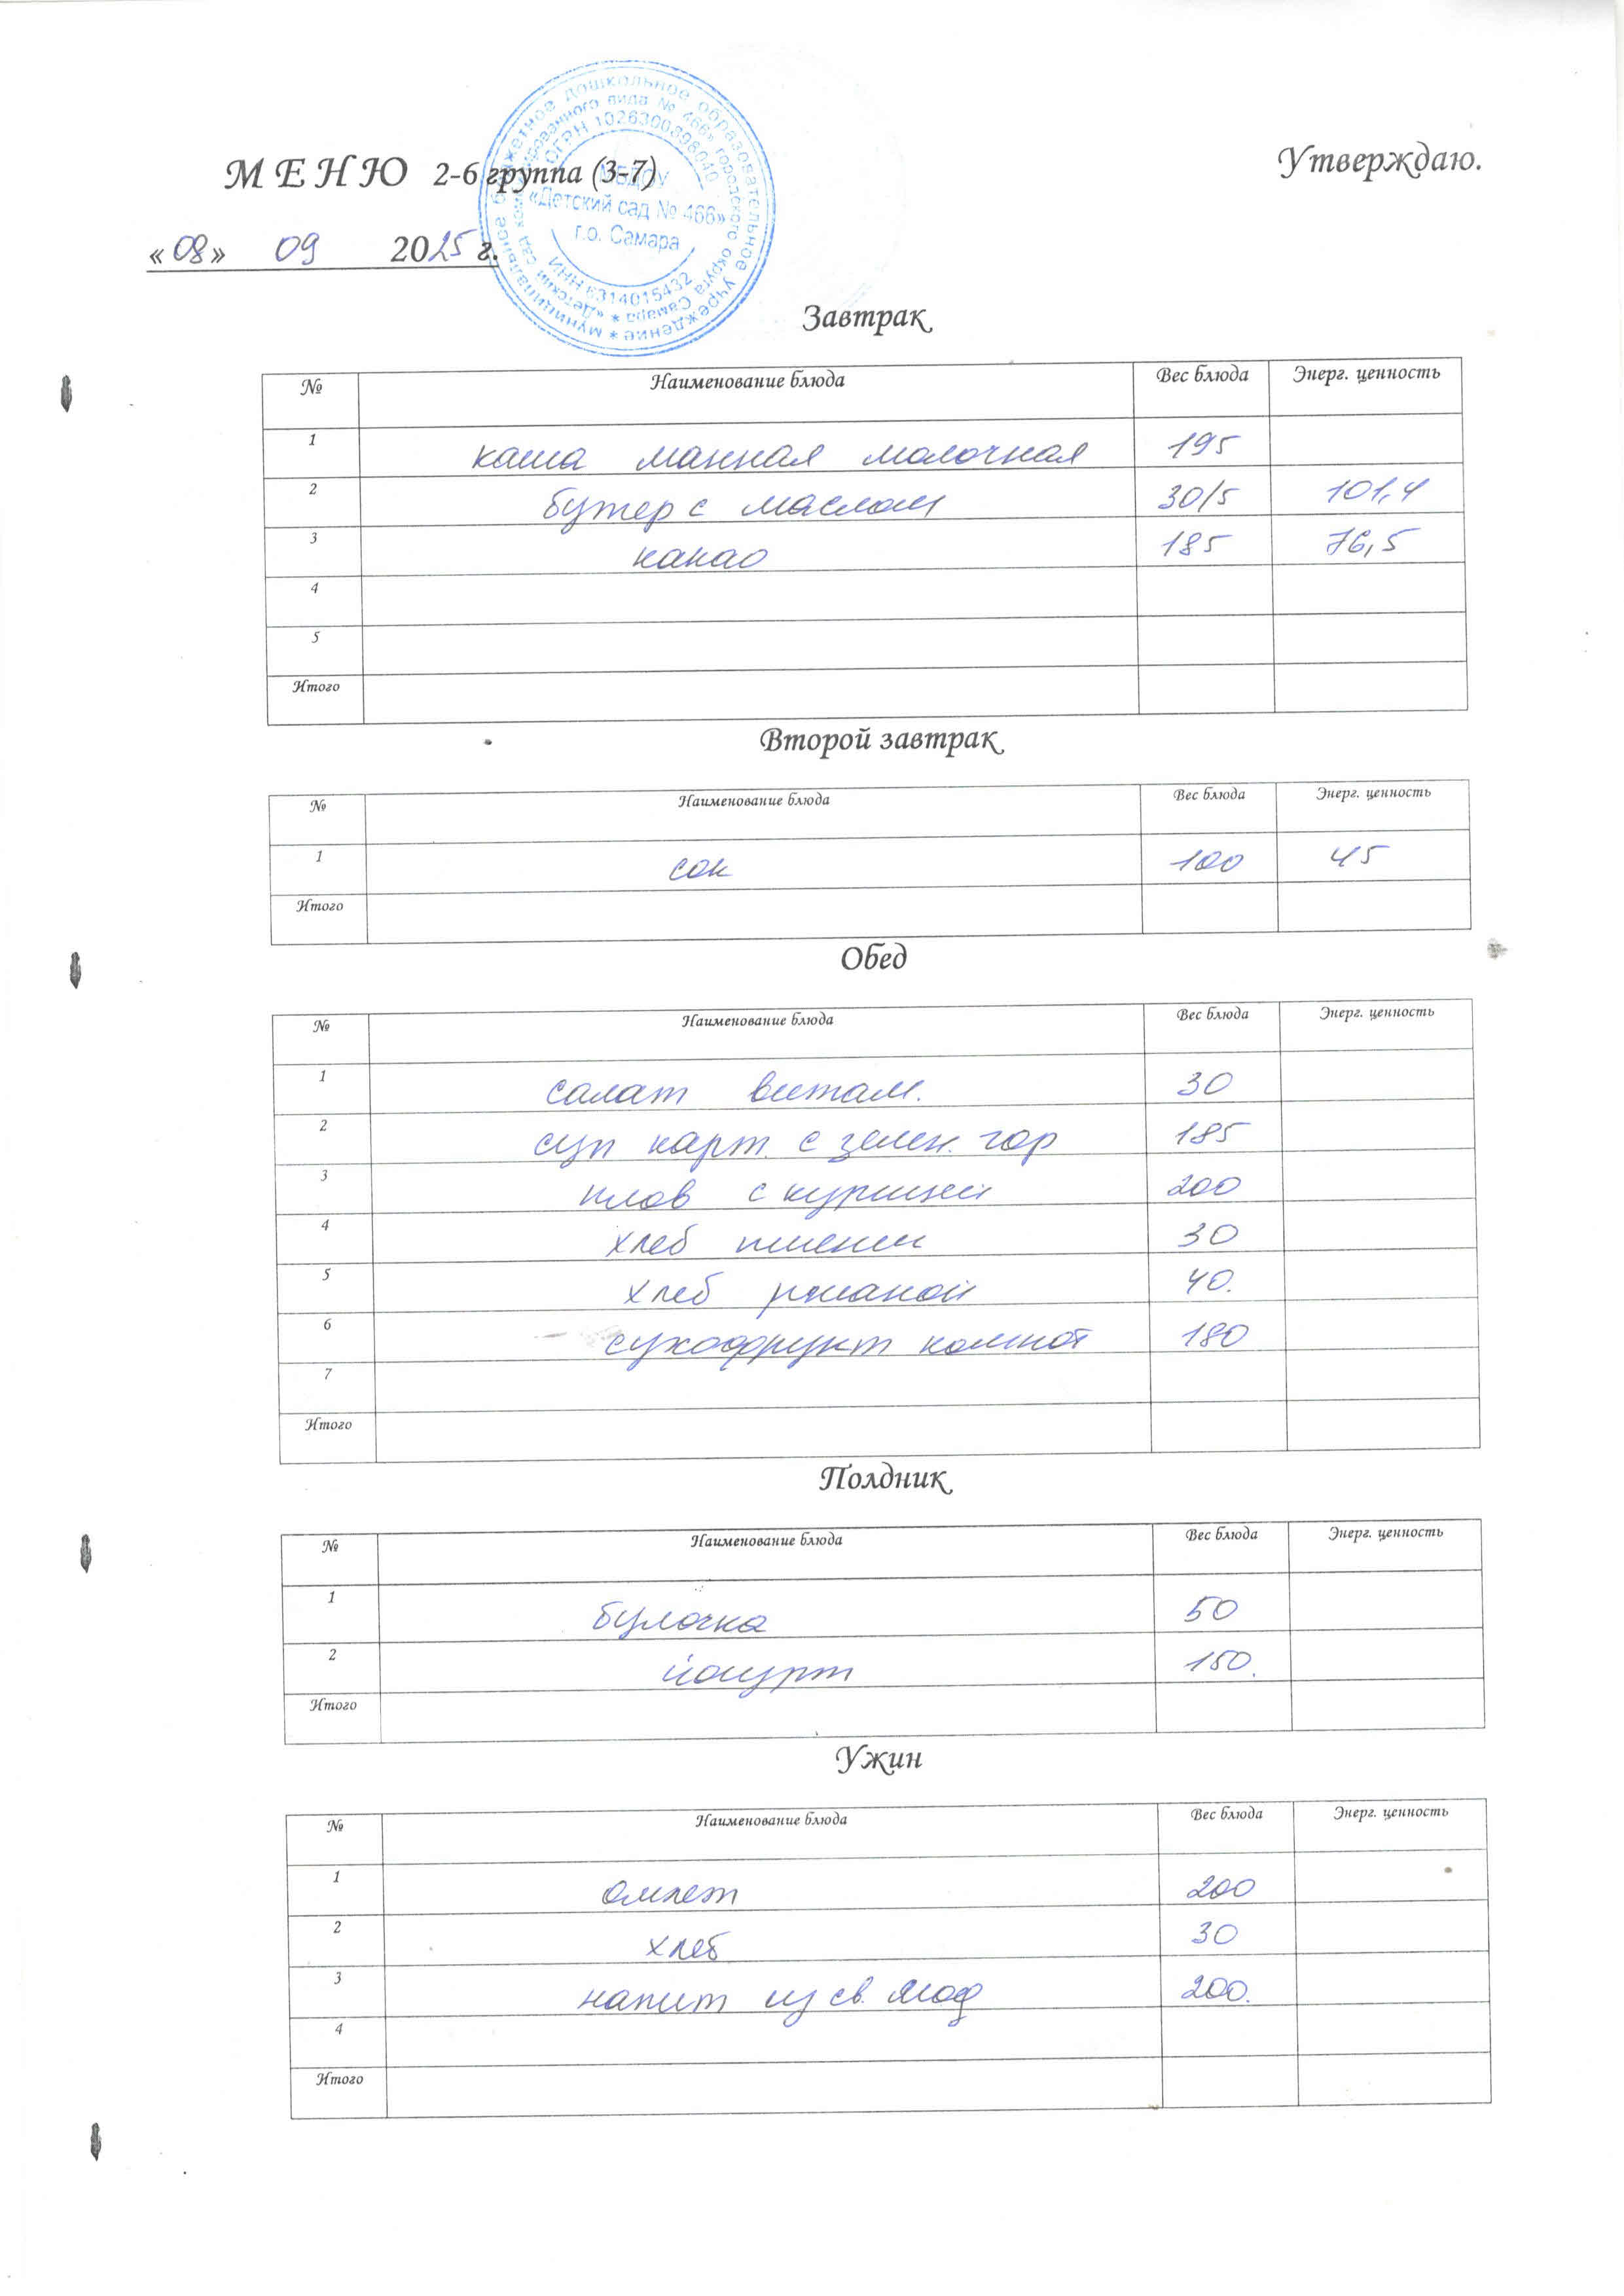 Утверждаю.
М Е Н Ю 2-6 группа (3-7)
«08» 09 2025 г.
муниципальное бюджетное дошкольное образовательное учреждение * «Детский сад комбинированного вида № 466» городского округа Самара *
ОГРН 1026300898040
МБДОУ
«Детский сад № 466»
г.о. Самара
ИНН 6314015432
Завтрак
№ Наименование блюда Вес блюда Энерг. ценность
1 каша манная молочная 195
2 бутер с маслом 30/5 101,4
3 какао 185 76,5
4
5
Итого
Второй завтрак
№ Наименование блюда Вес блюда Энерг. ценность
1 сок 100 45
Итого
Обед
№ Наименование блюда Вес блюда Энерг. ценность
1 салат витам. 30
2 суп карт. с зелен. гор 185
3 плов с курицей 200
4 хлеб пшенич 30
5 хлеб ржаной 40.
6 сухофрукт компот 180
7
Итого
Полдник
№ Наименование блюда Вес блюда Энерг. ценность
1 булочка 50
2 йогурт 150.
Итого
Ужин
№ Наименование блюда Вес блюда Энерг. ценность
1 Омлет 200
2 хлеб 30
3 напит из св. ягод 200.
4
Итого